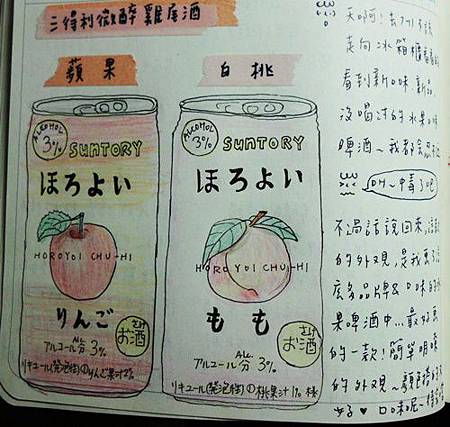 三得利微醉雞尾酒
蘋果
白桃
ALCOHOL
3%
SUNTORY
ほろよい
HOROYOI CHU-HI
りんご
お酒
アルコール分 3%
リキュール(発泡性)①りんご果汁2%
ALCOHOL
3%
SUNTORY
ほろよい
HOROYOI CHU-HI
もも
お酒
アルコール分 3%
リキュール(発泡性)①桃果汁
天啊!去7-11不說
走向冰箱櫃
看到新口味新品
沒喝過的水果
啤酒~我都會
OH~中毒了吧
不過話說回來,
的外觀,是我
底多品牌&口味的
果啤酒中...最好
的一款!簡單明瞭
的外觀~顏色
好♥口味呢~